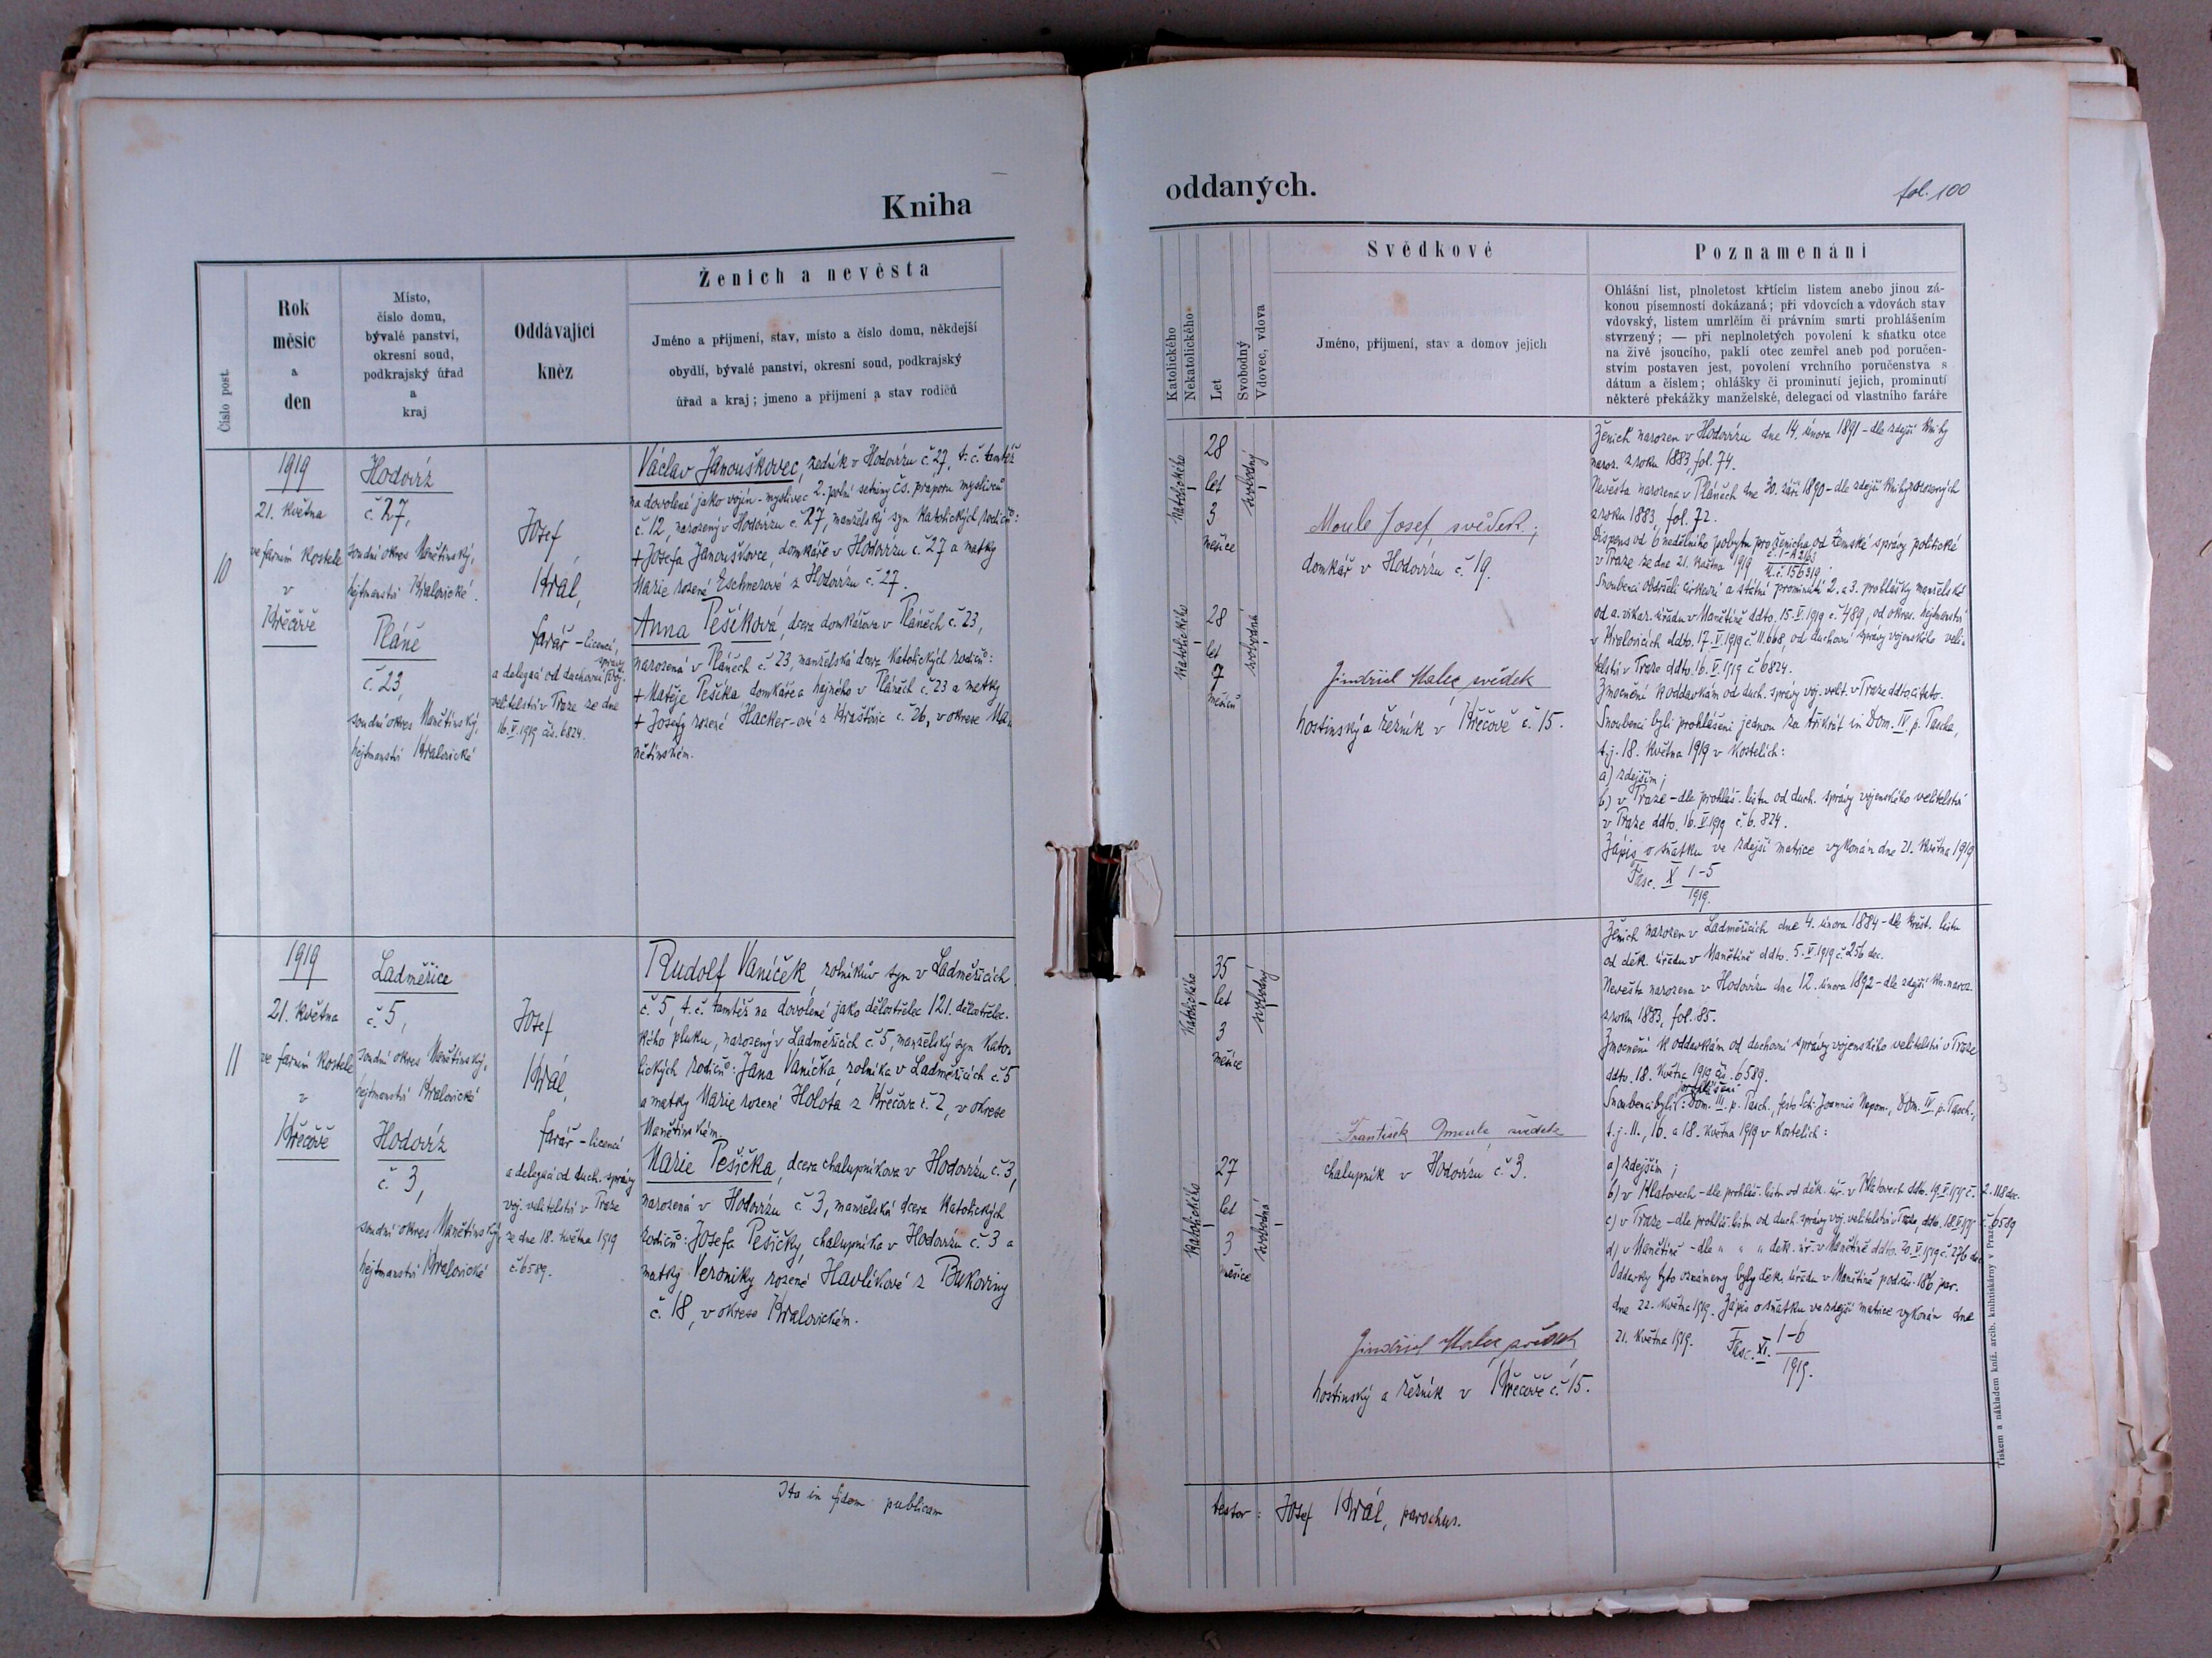 Kniha
oddaných.
fol. 100
Číslo post.
Rok
měsíc
a
den
Místo,
číslo domu,
bývalé panství,
okresní soud,
podkrajský úřad
a
kraj
Oddávající
kněz
Ženich a nevěsta
Jméno a příjmení, stav, místo a číslo domu, někdejší
obydlí, bývalé panství, okresní soud, podkrajský
úřad a kraj; jmeno a příjmení a stav rodičů
Katolického
Nekatolického
Let
Svobodný
Vdovec, vdova
Svědkové
Jméno, příjmení, stav a domov jejich
Poznamenání
Ohlášní list, plnoletost křticím listem anebo jinou zá-
konou písemností dokázaná; při vdovcích a vdovách stav
vdovský, listem umrlčím či právním smrti prohlášením
stvrzený; — při neplnoletých povolení k sňatku otce
na živě jsoucího, pakli otec zemřel aneb pod poručen-
stvím postaven jest, povolení vrchního poručenstva s
dátum a číslem; ohlášky či prominutí jejich, prominutí
některé překážky manželské, delegací od vlastního faráře
10
1919
21. května
ve farním kostele
v
Křečově
Hodovíz
č. 27,
soudní okres Manětínský,
hejtmanství Kralovické.
Pláně
č. 23,
soudní okres Manětínský,
hejtmanství Kralovické
Josef
Král,
farář - licencí,
a delegací od duchovní správy voj.
velitelství v Praze ze dne
16.V.1919 čís. 6824.
Václav Janouškovec, zedník v Hodovízu č. 27, t. č. tamtéž
na dovolené jako vojín - myslivec 2. polní setniny čs. praporu myslivců
č. 12, narozený v Hodovízu č. 27, manželský syn katolických rodičů:
+ Josefa Janouškovce, domkáře v Hodovízu č. 27 a matky
Marie rozené Eschnerové z Hodovízu č. 27.
Anna Pešíková, dcera domkářova v Pláněch č. 23,
narozená v Pláněch č. 23, manželská dcera katolických rodičů:
+ Matěje Pešíka domkáře a hajného v Pláněch č. 23 a matky
+ Josefy rozené Hacker-ové z Hraštovic č. 26, v okrese Ma-
nětínském.
katolického
28
let
3
měsíce
svobodný
katolického
28
let
7
měsíců
svobodná
Moule Josef, svědek;
domkář v Hodovízu č. 19.
Jindřich Malec svědek
hostinský a řezník v Křečově č. 15.
Ženich narozen v Hodovízu dne 14. února 1891 - dle zdejší knihy
naroz. z roku 1883, fol. 74.
Nevěsta narozena v Pláněch dne 30. září 1890 - dle zdejší knihy narozených
z roku 1883, fol. 72.
Dispens od 6 nedělního pobytu pro ženicha od Zemské správy politické
v Praze ze dne 21. května 1919
Snoubenci obdrželi církevní a státní prominutí 2. a 3. prohlášky manželské
od a. vikar. úřadu v Manětíně ddto. 15.V.1919 č. 489, od okres. hejtmanství
v Kralovicích ddto. 17.V.1919 č. 11.668, od duchovní správy vojenského veli-
telství v Praze ddto. 16.V.1919 č. 6824.
Zmocnění k oddavkám od duch. správy voj. velit. v Praze ddto citato.
Snoubenci byli prohlášeni jednou za třikrát in Dom. IV. p. Pascha,
t. j. 18. května 1919 v kostelích:
a) zdejším;
b) v Praze - dle prohláš. listu od duch. správy vojenského velitelství
v Praze ddto. 16.V.1919 č. 6.824.
Zápis o sňatku ve zdejší matrice vykonán dne 21. května 1919
Fasc. X 1-5
1919.
11
1919
21. května
ve farním kostele
v
Křečově
Ladměřice
č. 5,
soudní okres Manětínský,
hejtmanství Kralovické
Hodovíz
č. 3,
soudní okres Manětínský,
hejtmanství Kralovické
Josef
Král,
farář - licencí
a delegací od duch. správy
voj. velitelství v Praze
ze dne 18. května 1919
č. 6589.
Rudolf Vaníček, rolníkův syn v Ladměřicích
č. 5, t. č. tamtéž na dovolené jako dělostřelec 121. dělostřelec-
kého pluku, narozený v Ladměřicích č. 5, manželský syn kato-
lických rodičů: Jana Vaníčka, rolníka v Ladměřicích č. 5
a matky Marie rozené Holota z Křečova č. 2, v okrese
Manětínském.
Marie Pešička, dcera chalupníkova v Hodovízu č. 3,
narozená v Hodovízu č. 3, manželská dcera katolických
rodičů: Josefa Pešičky, chalupníka v Hodovízu č. 3 a
matky Veroniky rozené Havlíkové z Bukoviny
č. 18, v okrese Kralovickém.
katolického
35
let
3
měsíce
svobodný
katolického
27
let
3
měsíce
svobodná
František Zmoule svědek
chalupník v Hodovízu č. 3.
Jindřich Malec svědek
hostinský a řezník v Křečově č. 15.
Ženich narozen v Ladměřicích dne 4. února 1884 - dle křest. listu
od děk. úřadu v Manětíně ddto. 5.V.1919 č. 256 dec.
Nevěsta narozena v Hodovízu dne 12. února 1892 - dle zdejší kn. naroz.
z roku 1883, fol. 85.
Zmocnění k oddavkám od duchovní správy vojenského velitelství v Praze
ddto. 18. května 1919 čís. 6589.
Snoubenci byli prohlášeni: Dom. III. p. Pasch., festo Scti. Joannis Nepom., Dom. IV. p. Pasch.,
t. j. 11., 16. a 18. května 1919 v kostelích:
a) zdejším;
b) v Klatovech - dle prohláš. listu od děk. úř. v Klatovech ddto. 19.V.1919 č. 2.118 dec.
c) v Praze - dle prohláš. listu od duch. správy voj. velitelství v Praze, ddto. 18.V.1919 č. 6589
d) v Manětíně - dle " " " děk. úř. v Manětíně ddto. 20.V.1919 č. 276 dec.
Oddavky tyto oznámeny byly děk. úřadu v Manětíně pod čís. 186 par.
dne 22. května 1919. Zápis o sňatku ve zdejší matrice vykonán dne
21. května 1919. Fasc. XI. 1-6
1919.
Tiskem a nákladem kníž. arcib. knihtiskárny v Praze
Ita in fidem publicam
testor: Josef Král, parochus.